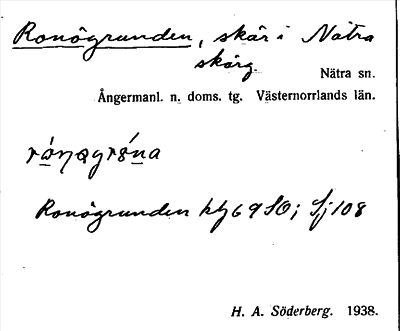 Ronögrunden, skär i Nätra
skärg.
Nätra sn.
Ångermanl. n. doms. tg. Västernorrlands län.
Ronögrunden kbl 69 SO; Sj 108
H. A. Söderberg. 1938.